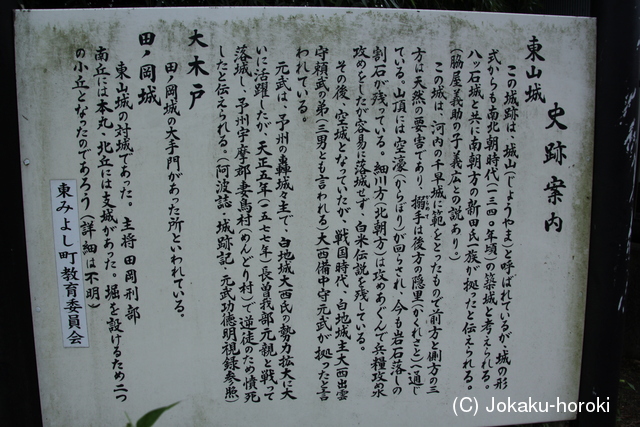 史跡案内
東山城
この城跡は、城山(じょうやま)と呼ばれているが、城の形
式からも南北朝時代(一三四〇年頃)の築城と考えられる。
八ッ石城と共に南朝方の新田氏一族が拠ったと伝えられる。
(脇屋義助の子・義広との説あり。)
この城は、河内の千早城に範をとったもので前方と側方の三
方は天然の要害であり、搦手は後方の隠里(かくれざと)へ通じ
ている。山頂には空濠(からぼり)が回らされ、今も岩石落しの
割石が残っている。細川方(北朝方)は攻めあぐんで兵糧攻水
攻めをしたが容易に落城せず、白米伝説を残している。
その後、空城となっていたが、戦国時代、白地城主大西出雲
守頼武の弟(三男とも言われる)大西備中守元武が拠ったと言
われている。
元武は、予州の轟城々主で、白地城大西氏の勢力拡大に大
いに活躍したが、天正五年(一五七七年)長曽我部元親と戦って
落城し、予州宇摩郡妻鳥村(めんどり村)で逆徒のため憤死
したと伝えられる。(阿波誌・城跡記・元武功徳明視録参照)
大木戸
田ノ岡城の大手門があった所といわれている。
田ノ岡城
東山城の対城であった。主将田岡刑部
南丘には本丸、北丘には支城があった。堀を設けるため二つ
の小丘となったのであろう(詳細は不明)
東みよし町教育委員会
(C) Jokaku-horoki